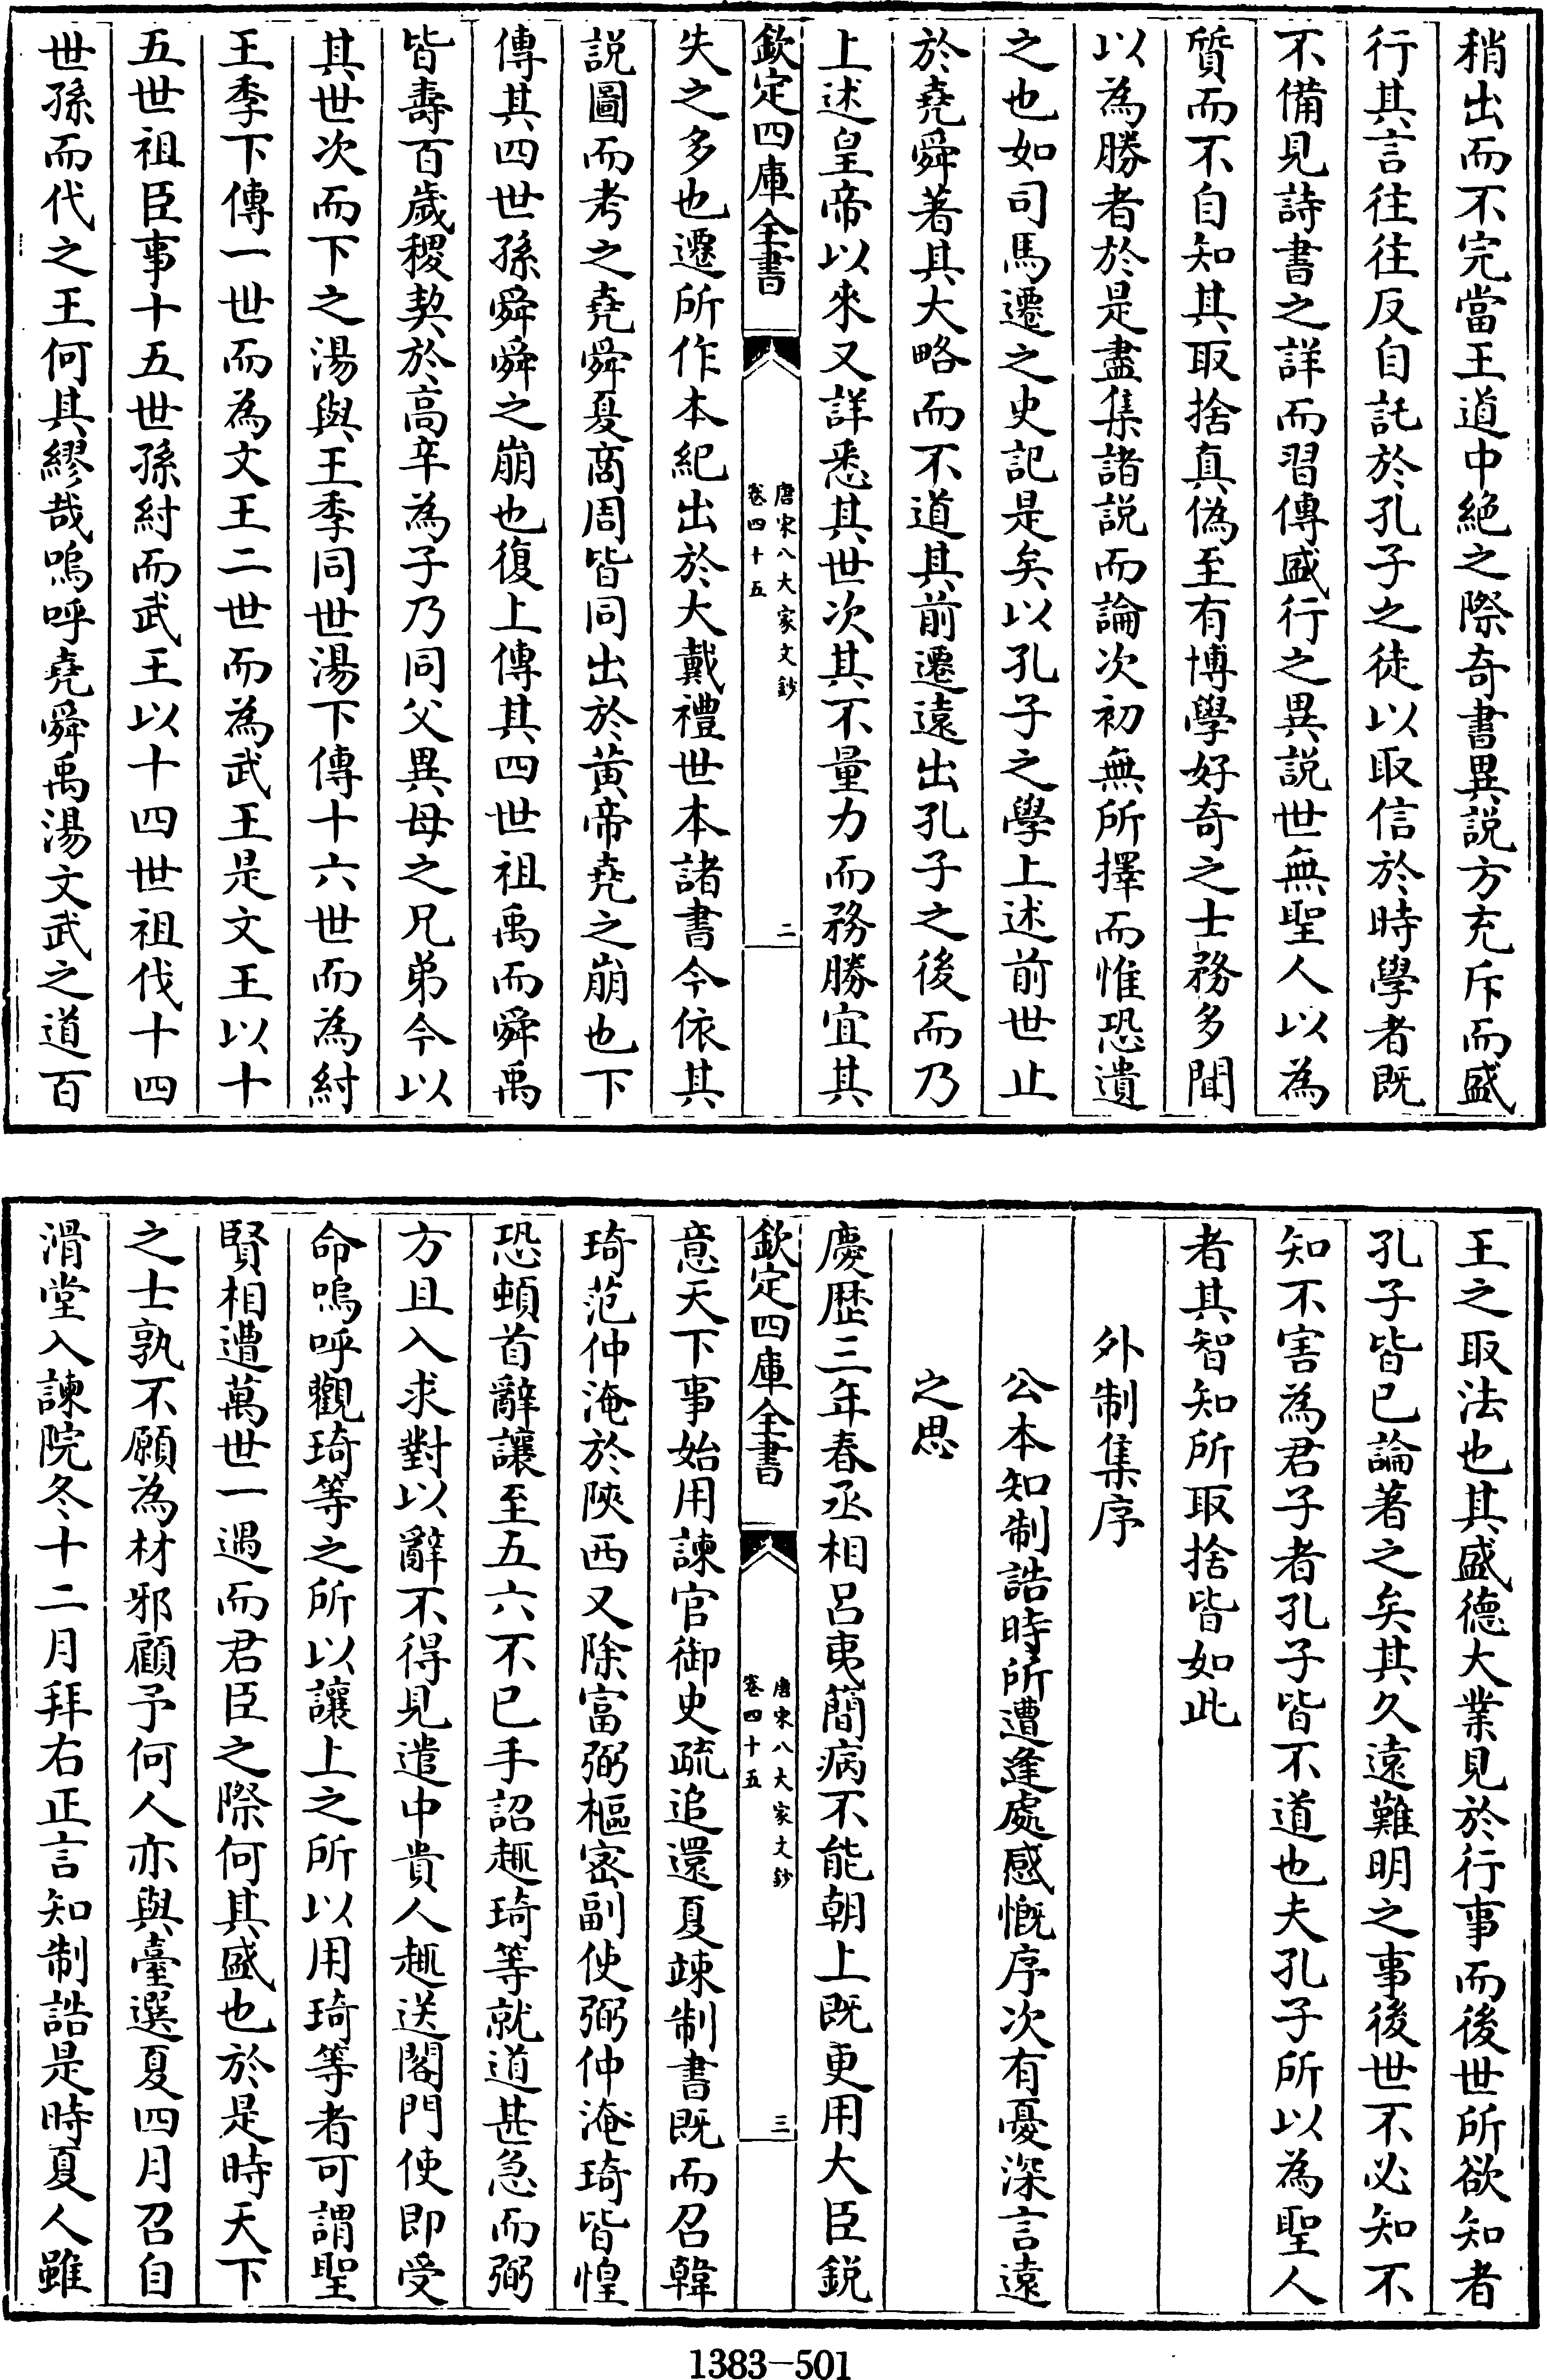 稍出而不完當王道中絶之際奇書異説方充斥而盛
行其言往往反自託於孔子之徒以取信於時學者既
不備見詩書之詳而習傳盛行之異説世無聖人以為
質而不自知其取捨真偽至有博學好奇之士務多聞
以為勝者於是盡集諸説而論次初無所擇而惟恐遺
之也如司馬遷之史記是矣以孔子之學上述前世止
於堯舜著其大略而不道其前遷遠出孔子之後而乃
上述皇帝以來又詳悉其世次其不量力而務勝宜其
欽定四庫全書
唐宋八大家文鈔
卷四十五
二
失之多也遷所作本紀出於大戴禮世本諸書今依其
説圖而考之堯舜夏商周皆同出於黄帝堯之崩也下
傳其四世孫舜舜之崩也復上傳其四世祖禹而舜禹
皆壽百歲稷契於高辛為子乃同父異母之兄弟今以
其世次而下之湯與王季同世湯下傳十六世而為紂
王季下傳一世而為文王二世而為武王是文王以十
五世祖臣事十五世孫紂而武王以十四世祖伐十四
世孫而代之王何其繆哉嗚呼堯舜禹湯文武之道百
王之取法也其盛德大業見於行事而後世所欲知者
孔子皆已論著之矣其久遠難明之事後世不必知不
知不害為君子者孔子皆不道也夫孔子所以為聖人
者其智知所取捨皆如此
外制集序
公本知制誥時所遭逢處感慨序次有憂深言遠
之思
慶歴三年春丞相呂夷簡病不能朝上既更用大臣鋭
欽定四庫全書
唐宋八大家文鈔
卷四十五
三
意天下事始用諫官御史疏追還夏竦制書既而召韓
琦范仲淹於陜西又除富弼樞宻副使弼仲淹琦皆惶
恐頓首辭讓至五六不已手詔趣琦等就道甚急而弼
方且入求對以辭不得見遣中貴人趣送閤門使即受
命嗚呼觀琦等之所以讓上之所以用琦等者可謂聖
賢相遭萬世一遇而君臣之際何其盛也於是時天下
之士孰不願為材邪顧予何人亦與臺選夏四月召自
滑堂入諫院冬十二月拜右正言知制誥是時夏人雖
1383-501